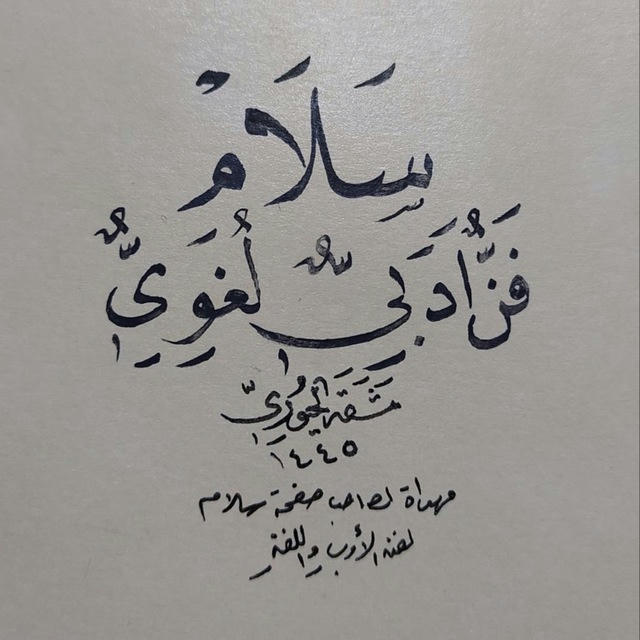 سَلَامْ
فَنٌّ أَدَبِيٌّ لُغَوِيٌّ
مشقه الجبوريّ
١٤٤٥
مهداة لصاحب صفحة سلام
لفتة الأدب واللغة